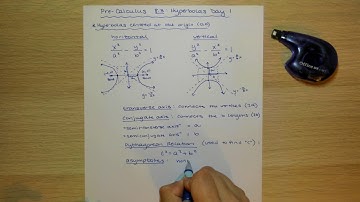 Pre-Calculus 8.3: Hyperbolas Day 1
* Hyperbolas centered at the origin (0,0)
horizontal vertical
x²/a² - y²/b² = 1 y²/a² - x²/b² = 1
transverse axis: connects the vertices (2a)
conjugate axis: connects the b lengths (2b)
"semitransverse axis" = a
"semiconjugate axis" = b
Pythagorean Relation: (used to find "c"):
c² = a² + b²
asymptotes: